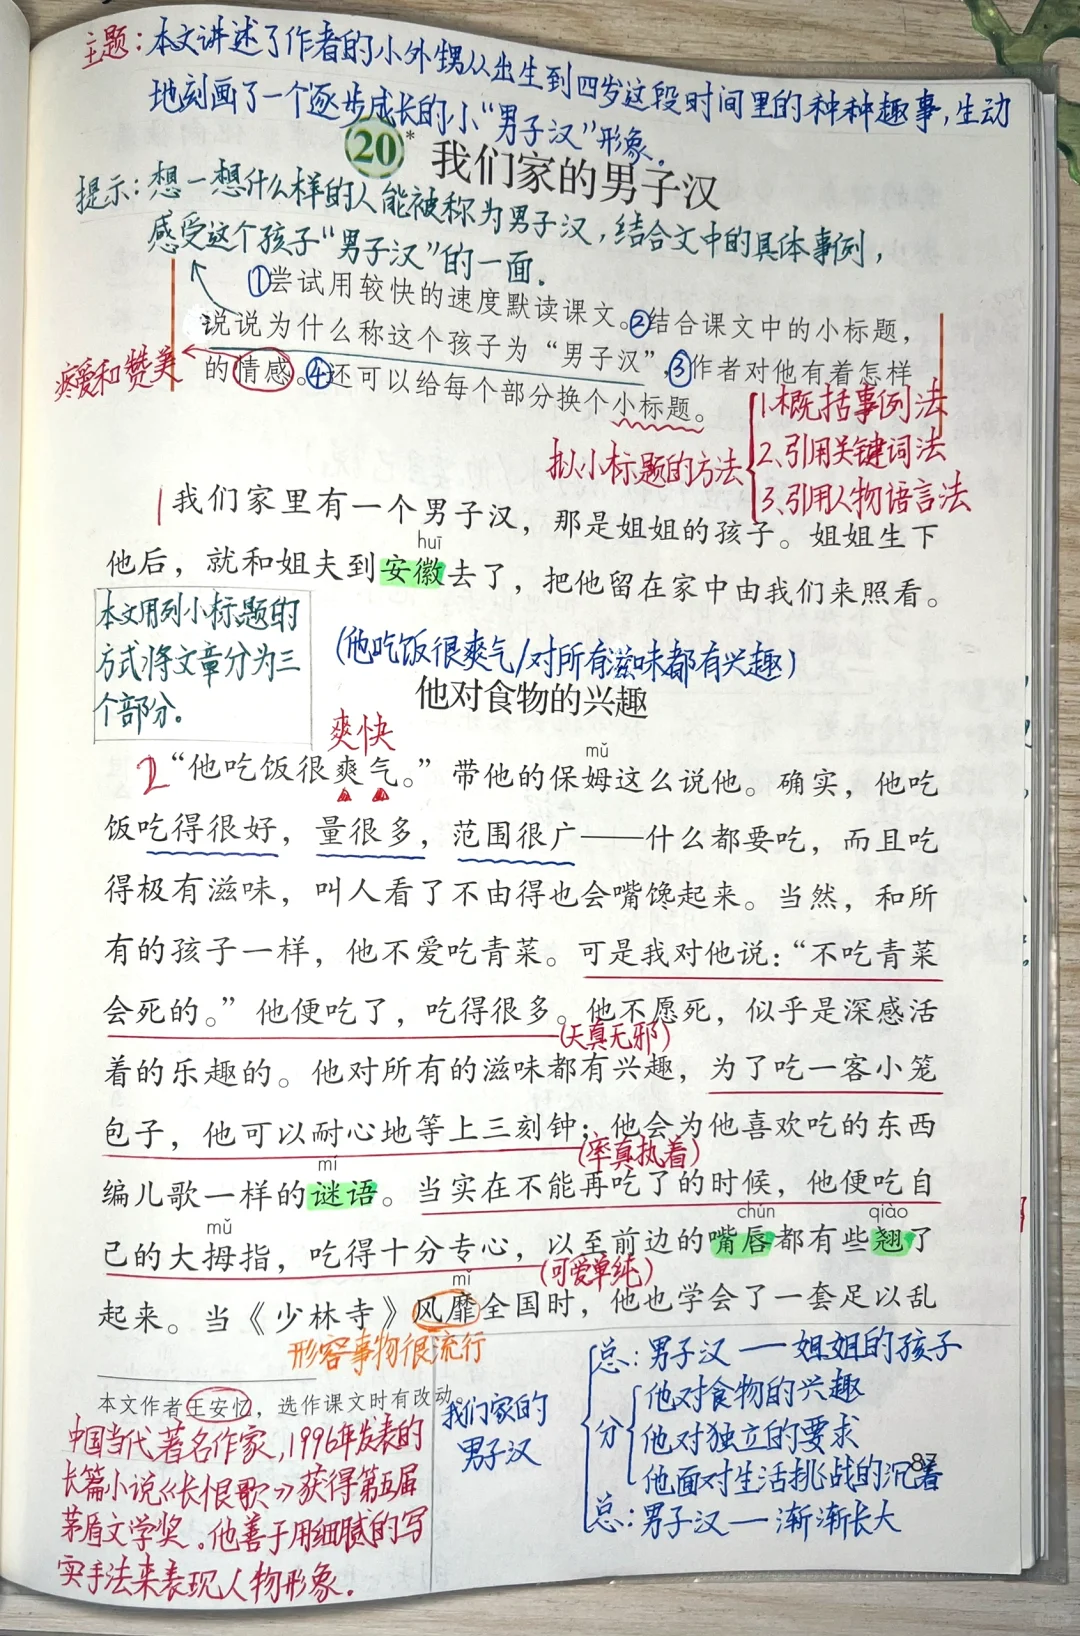 主题:本文讲述了作者的小外甥从出生到四岁这段时间里的种种趣事,生动
地刻画了一个逐步成长的小“男子汉”形象。
20* 我们家的男子汉
提示:想一想什么样的人能被称为男子汉,结合文中的具体事例,
感受这个孩子“男子汉”的一面.
①尝试用较快的速度默读课文。②结合课文中的小标题,
说说为什么称这个孩子为“男子汉”,③作者对他有着怎样
的情感。④还可以给每个部分换个小标题。
疼爱和赞美
拟小标题的方法
1.概括事例法
2.引用关键词法
3.引用人物语言法
1 我们家里有一个男子汉,那是姐姐的孩子。姐姐生下
huī
他后,就和姐夫到安徽去了,把他留在家中由我们来照看。
本文用列小标题的
方式将文章分为三
个部分.
(他吃饭很爽气/对所有滋味都有兴趣)
他对食物的兴趣
爽快
mǔ
2 “他吃饭很爽气。”带他的保姆这么说他。确实,他吃
饭吃得很好,量很多,范围很广——什么都要吃,而且吃
得极有滋味,叫人看了不由得也会嘴馋起来。当然,和所
有的孩子一样,他不爱吃青菜。可是我对他说:“不吃青菜
会死的。”他便吃了,吃得很多。他不愿死,似乎是深感活
(天真无邪)
着的乐趣的。他对所有的滋味都有兴趣,为了吃一客小笼
包子,他可以耐心地等上三刻钟;他会为他喜欢吃的东西
(率真执着)
mí
编儿歌一样的谜语。当实在不能再吃了的时候,他便吃自
mǔ chún qiào
己的大拇指,吃得十分专心,以至前边的嘴唇都有些翘了
(可爱单纯)
mǐ
起来。当《少林寺》风靡全国时,他也学会了一套足以乱
形容事物很流行
本文作者王安忆,选作课文时有改动。
中国当代著名作家,1996年发表的
长篇小说《长恨歌》获得第五届
茅盾文学奖。他善于用细腻的写
实手法来表现人物形象.
我们家的
男子汉
总:男子汉 — 姐姐的孩子
分
他对食物的兴趣
他对独立的要求
他面对生活挑战的沉着
总:男子汉 — 渐渐长大
87